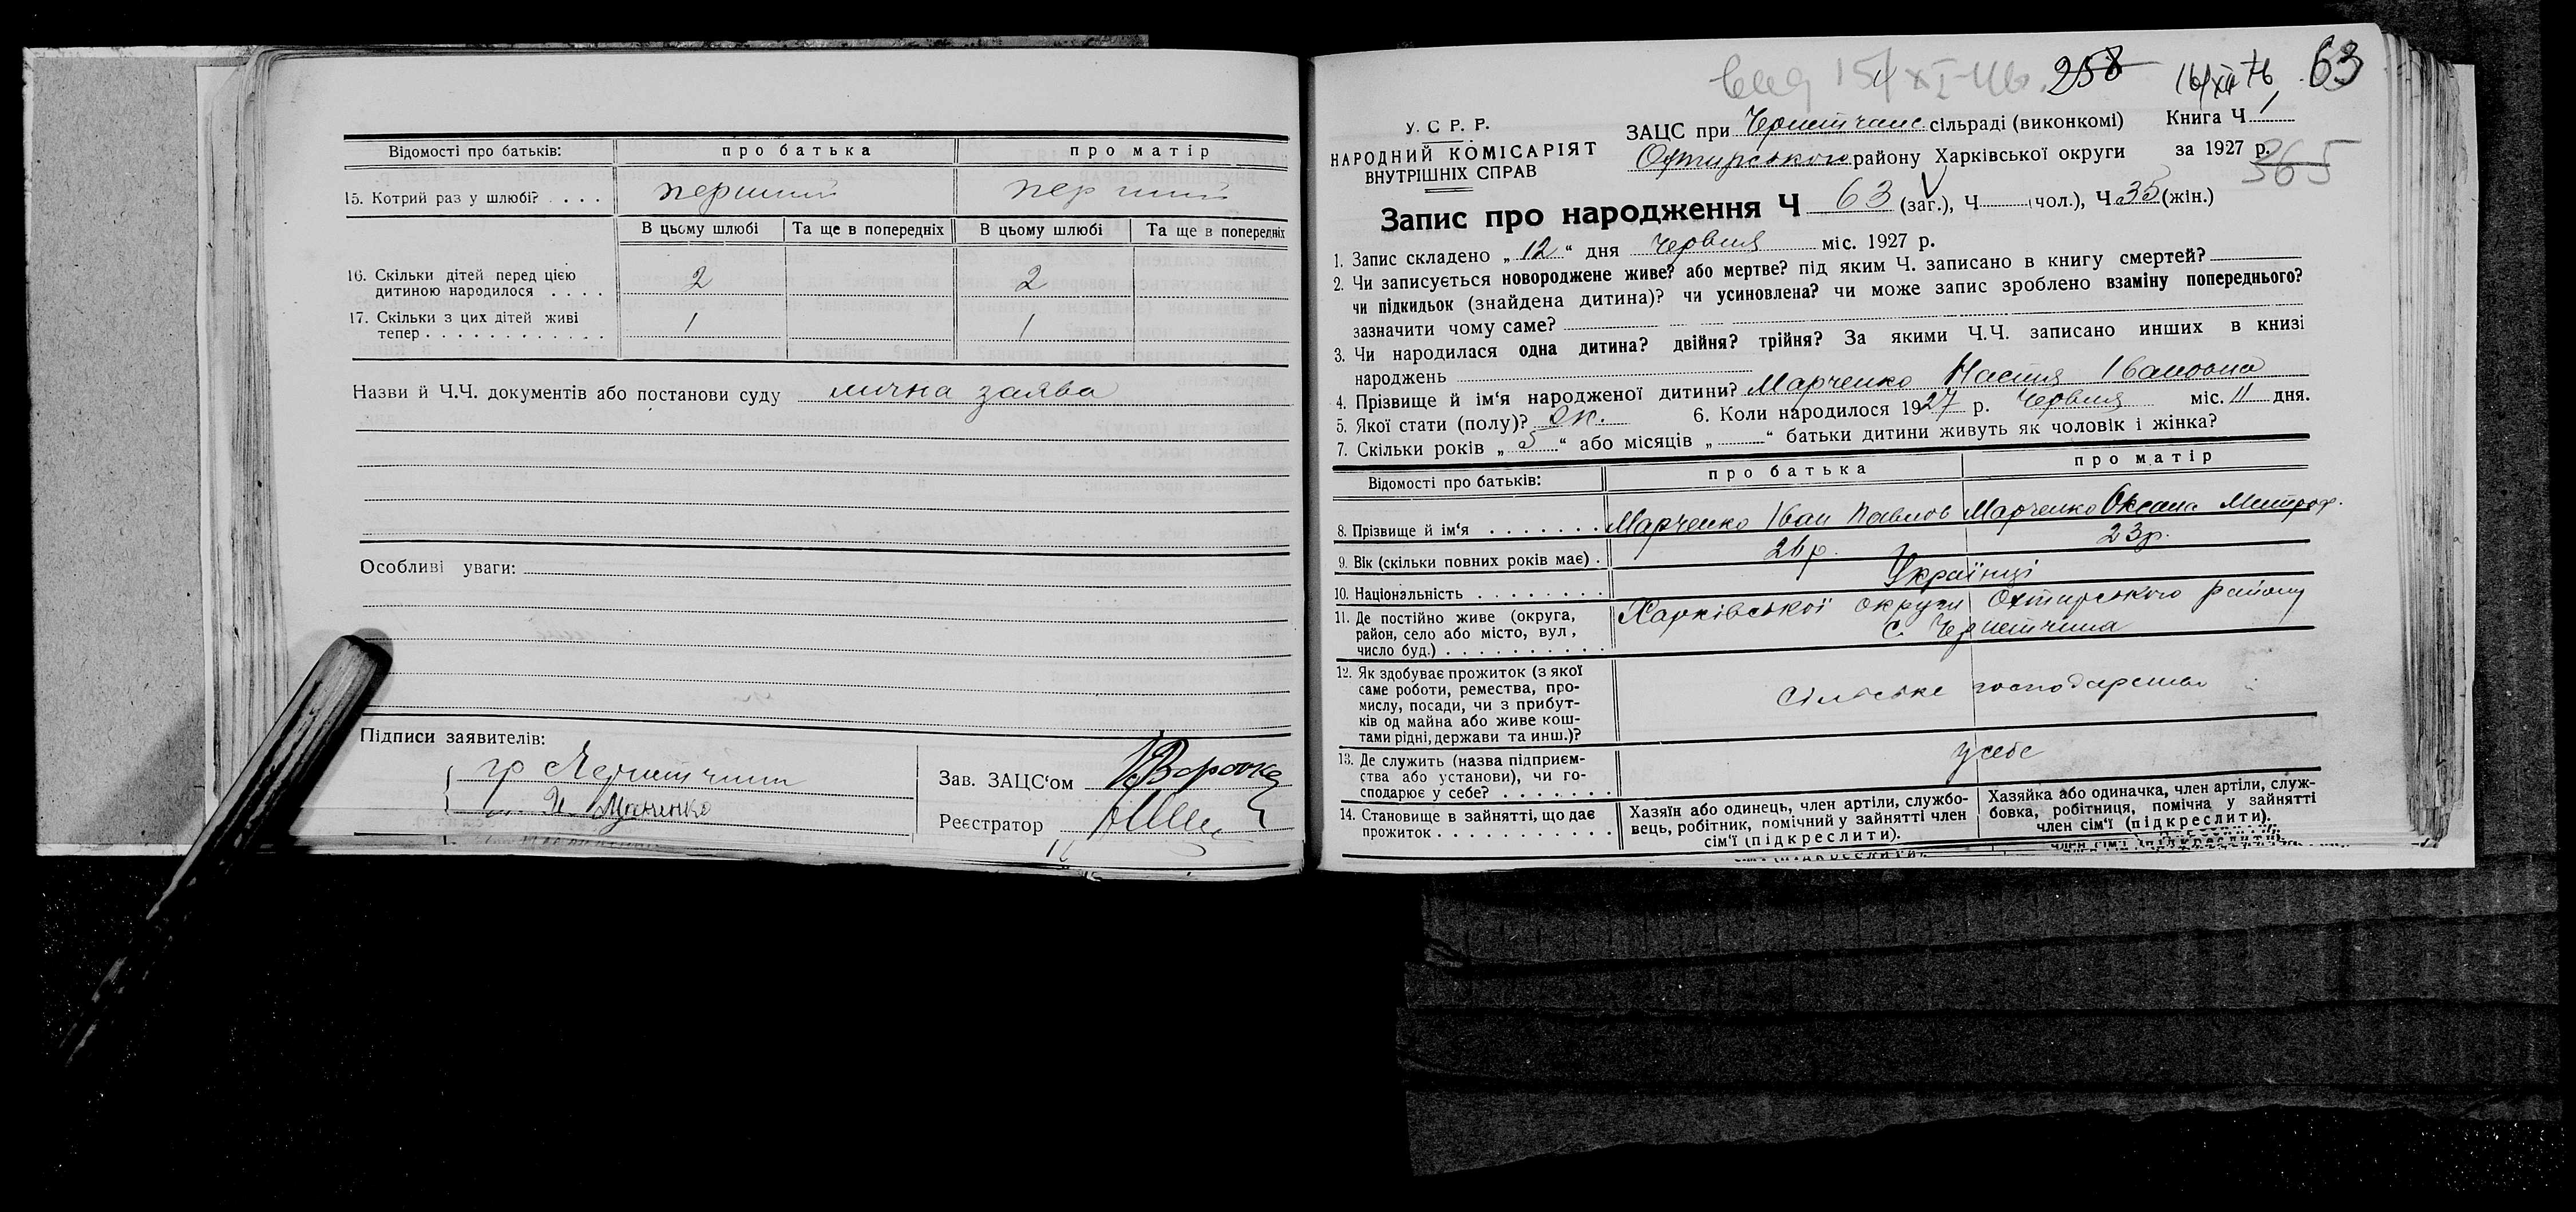 Відомості про батьків: про батька про матір
15. Котрий раз у шлюбі? . . . . перший перший
В цьому шлюбі Та ще в попередніх В цьому шлюбі Та ще в попередніх
16. Скільки дітей перед цією
дитиною народилося . . . . 2 2
17. Скільки з цих дітей живі
тепер . . . . . . . . . . . . 1 1
Назви й Ч.Ч. документів або постанови суду лична заява
Особливі уваги:
Підписи заявителів:
гр
Зав. ЗАЦС'ом
Реєстратор
258 63
У. С Р. Р.
НАРОДНИЙ КОМІСАРІЯТ
ВНУТРІШНІХ СПРАВ
ЗАЦС при сільраді (виконкомі) Книга Ч 1
Охтирського району Харківської округи за 1927 р.
365
Запис про народження Ч 63 (заг.), Ч (чол.), Ч 35 (жін.)
1. Запис складено „ 12 “ дня Червня міс. 1927 р.
2. Чи записується новороджене живе? або мертве? під яким Ч. записано в книгу смертей?
чи підкидьок (знайдена дитина)? чи усиновлена? чи може запис зроблено взаміну попереднього?
зазначити чому саме?
3. Чи народилася одна дитина? двійня? трійня? За якими Ч.Ч. записано инших в книзі
народжень
4. Прізвище й ім'я народженої дитини? Марченко Настя Івановна
5. Якої стати (полу)? ж. 6. Коли народилося 1927 р. Червня міс. 11 дня.
7. Скільки років „ 5 “ або місяців „ “ батьки дитини живуть як чоловік і жінка?
Відомості про батьків: про батька про матір
8. Прізвище й ім'я . . . . . . . Марченко Іван Павлов Марченко Оксана Митроф.
9. Вік (скільки повних років має) . 26р. 23р.
10. Національність . . . . . . . . Українці
11. Де постійно живе (округа,
район, село або місто, вул,
число буд.) . . . . . . . . . . Харківської округи Охтирського району
с. Чернетчина
12. Як здобуває прожиток (з якої
саме роботи, ремества, про-
мислу, посади, чи з прибут-
ків од майна або живе кош-
тами рідні, держави та инш.)? Сільське господарство
13. Де служить (назва підприєм-
ства або установи), чи го-
сподарює у себе? . . . . . . . у себе
14. Становище в зайнятті, що дає
прожиток . . . . . . . . . . .
Хазяїн або одинець, член артіли, службо-
вець, робітник, помічний у зайнятті член
сім'ї (підкреслити).
Хазяйка або одиначка, член артіли, служ-
бовка, робітниця, помічна у зайнятті
член сім'ї (підкреслити).